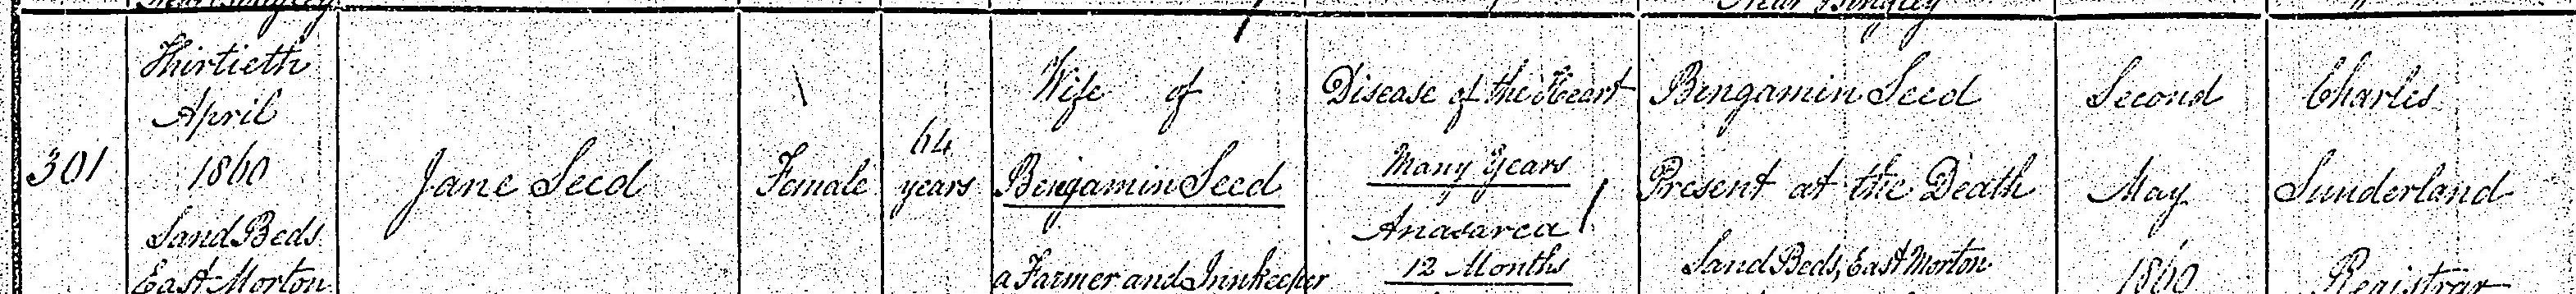 near Bingley
near Bingley
301
Thirtieth
April
1860
Sand Beds
East Morton
Jane Seed
Female
64
years
Wife of
Benjamin Seed
a Farmer and Innkeeper
Disease of the Heart
Many Years
Anasarca
12 Months
Bengamin Seed
Present at the Death
Sand Beds, East Morton
Second
May
1860
Charles
Sunderland
Registrar